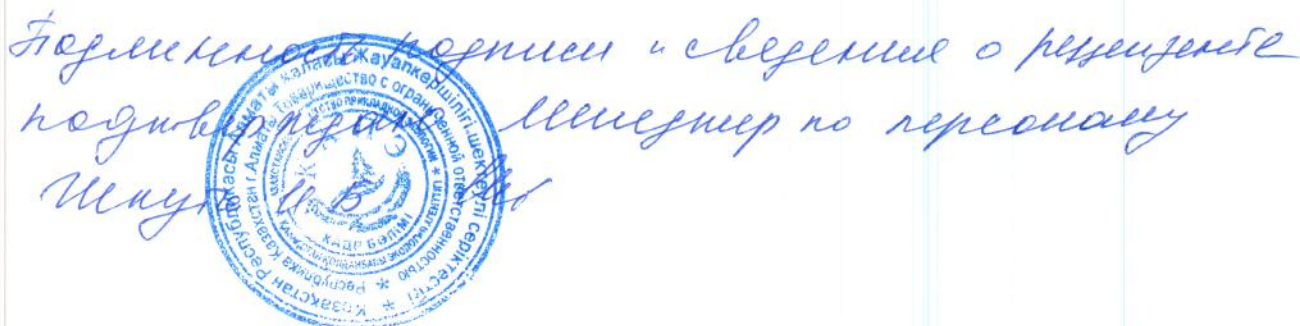 Подлинность подписи и сведения о рецензенте
подтверждаю Менеджер по персоналу
И.В.
Қазақстан Республикасы Алматы қаласы Жауапкершілігі шектеулі серіктестігі
Республика Казахстан г.Алматы Товарищество с ограниченной ответственностью
КАДР БӨЛІМІ